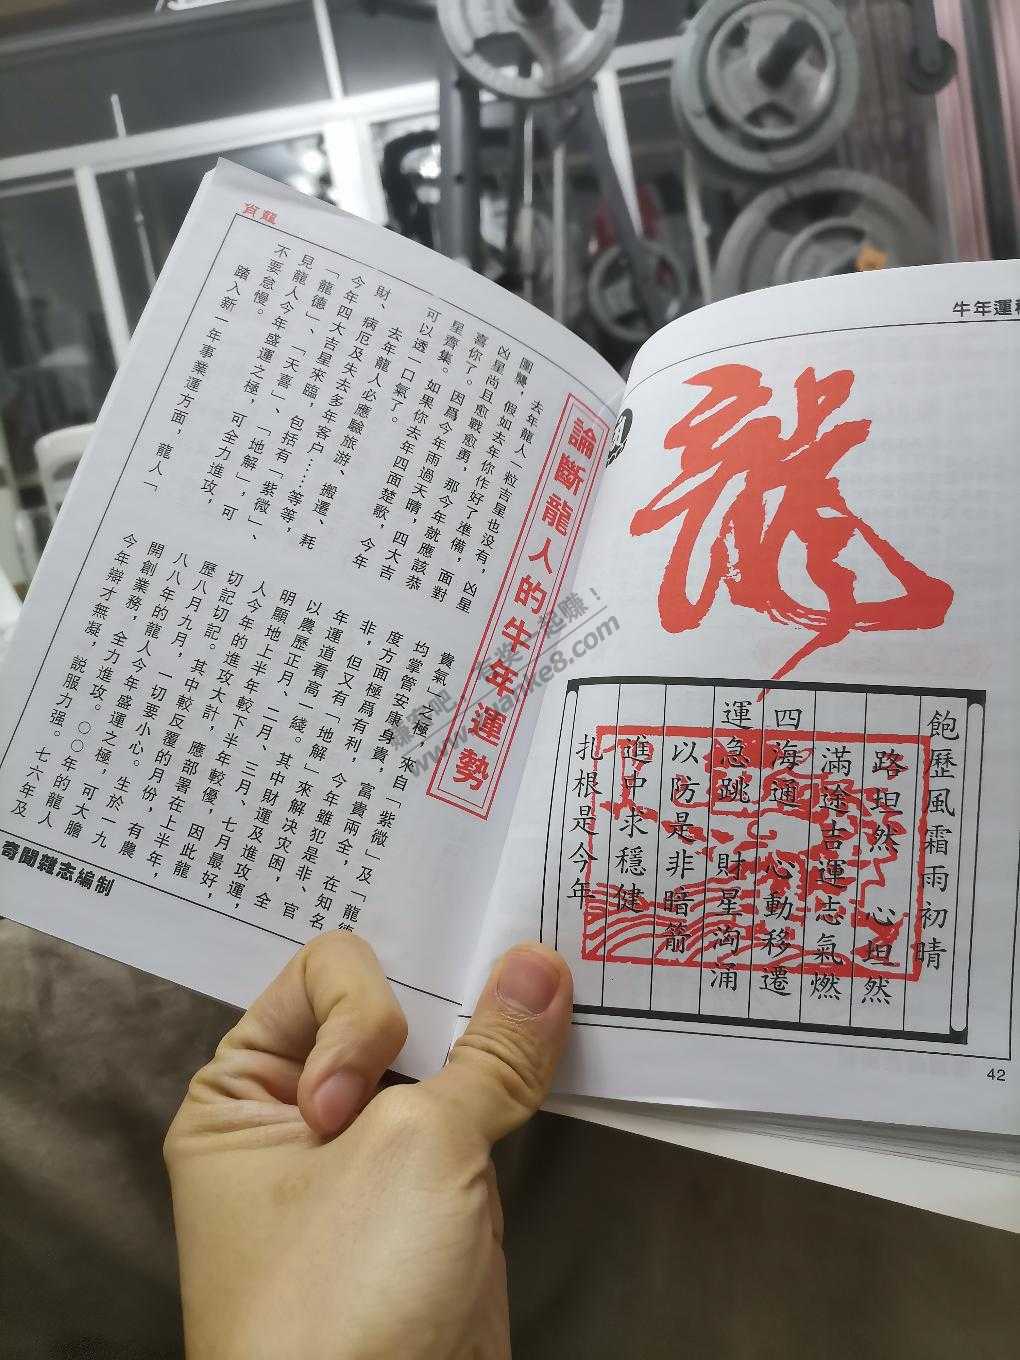 牛年運
龍
飽歷風霜雨初晴
路坦然 心坦然
滿途吉運志氣燃
四海通 心動移遷
運急跳 財星洶涌
以防是非暗箭
進中求穩健
扎根是今年
42
肖龍
論斷龍人的牛年運勢
去年龍人一粒吉星也没有，凶星
團襲，假如去年你作好了準備，面對
凶星尚且愈戰愈勇，那今年就應該恭
喜你了。因爲今年雨過天晴，四大吉
星齊集。如果你去年四面楚歌，今年
可以透一口氣了。
去年龍人必應驗旅游、搬遷、耗
財、病厄及失去多年客户……等等，
今年四大吉星來臨，包括有「紫微」、
「龍德」、「天喜」、「地解」，可
見龍人今年盛運之極，可全力進攻，
不要怠慢。
踏入新一年事業運方面，龍人「
貴氣」之極，來自「紫微」及「龍德
均掌管安康身貴，富貴兩全，在知名
度方面極爲有利，今年雖犯是非、官
非，但又有「地解」來解决灾困，全
年運道看高一綫。其中財運及進攻運，
以農歷正月、二月、三月、七月最好，
明顯地上半年較下半年較優，因此龍
人今年的進攻大計，應部署在上半年，
切記切記。其中較反覆的月份，有農
歷八月九月，一切要小心。生於一九
八八年的龍人今年盛運之極，可大膽
開創業務，全力進攻。〇〇年的龍人
今年辯才無凝，說服力强。七六年及
奇聞雜志編制
賺客吧 有獎一起賺！
www.zuanke8.com